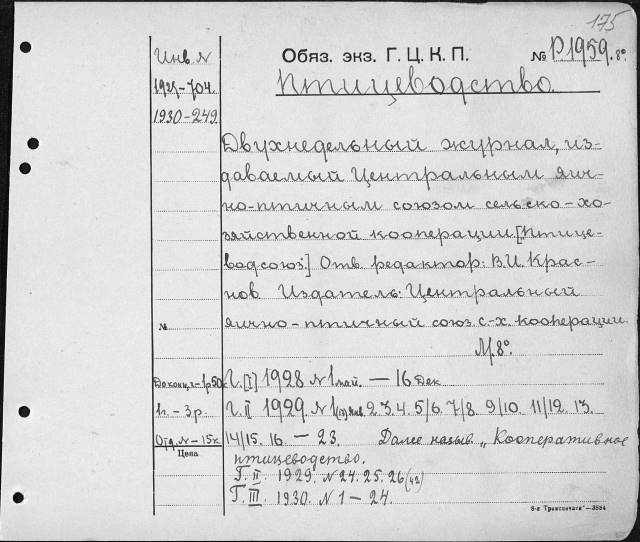 175
Инв. N
Обяз. экз. Г. Ц. К. П. № P1959. 8°.
1929-704.
Птицеводство.
1930-249.
Двухнедельный журнал, из-
даваемый Центральным яич-
но-птичным союзом сельско-хо-
зяйственной кооперации. [Птице-
водсоюз.] Отв. редактор: В.И. Крас-
нов Издатель: Центральный
№ яично-птичный союз с.-х. кооперации.
М. 8°.
До конц. г.-1р.50к Г. [I] 1928 N 1 май. — 16 Дек
1г. - 3р. Г. II 1929. N 1(17) янв. 2. 3. 4. 5/6. 7/8. 9/10. 11/12. 13.
Отд. N - 15к 14/15. 16. — 23. Далее назыв. „Кооперативное
Цена птицеводство.
Г. II. 1929. N 24. 25. 26 (42)
Г. III. 1930. N 1 — 24.
8-я „Транспечать“—3594